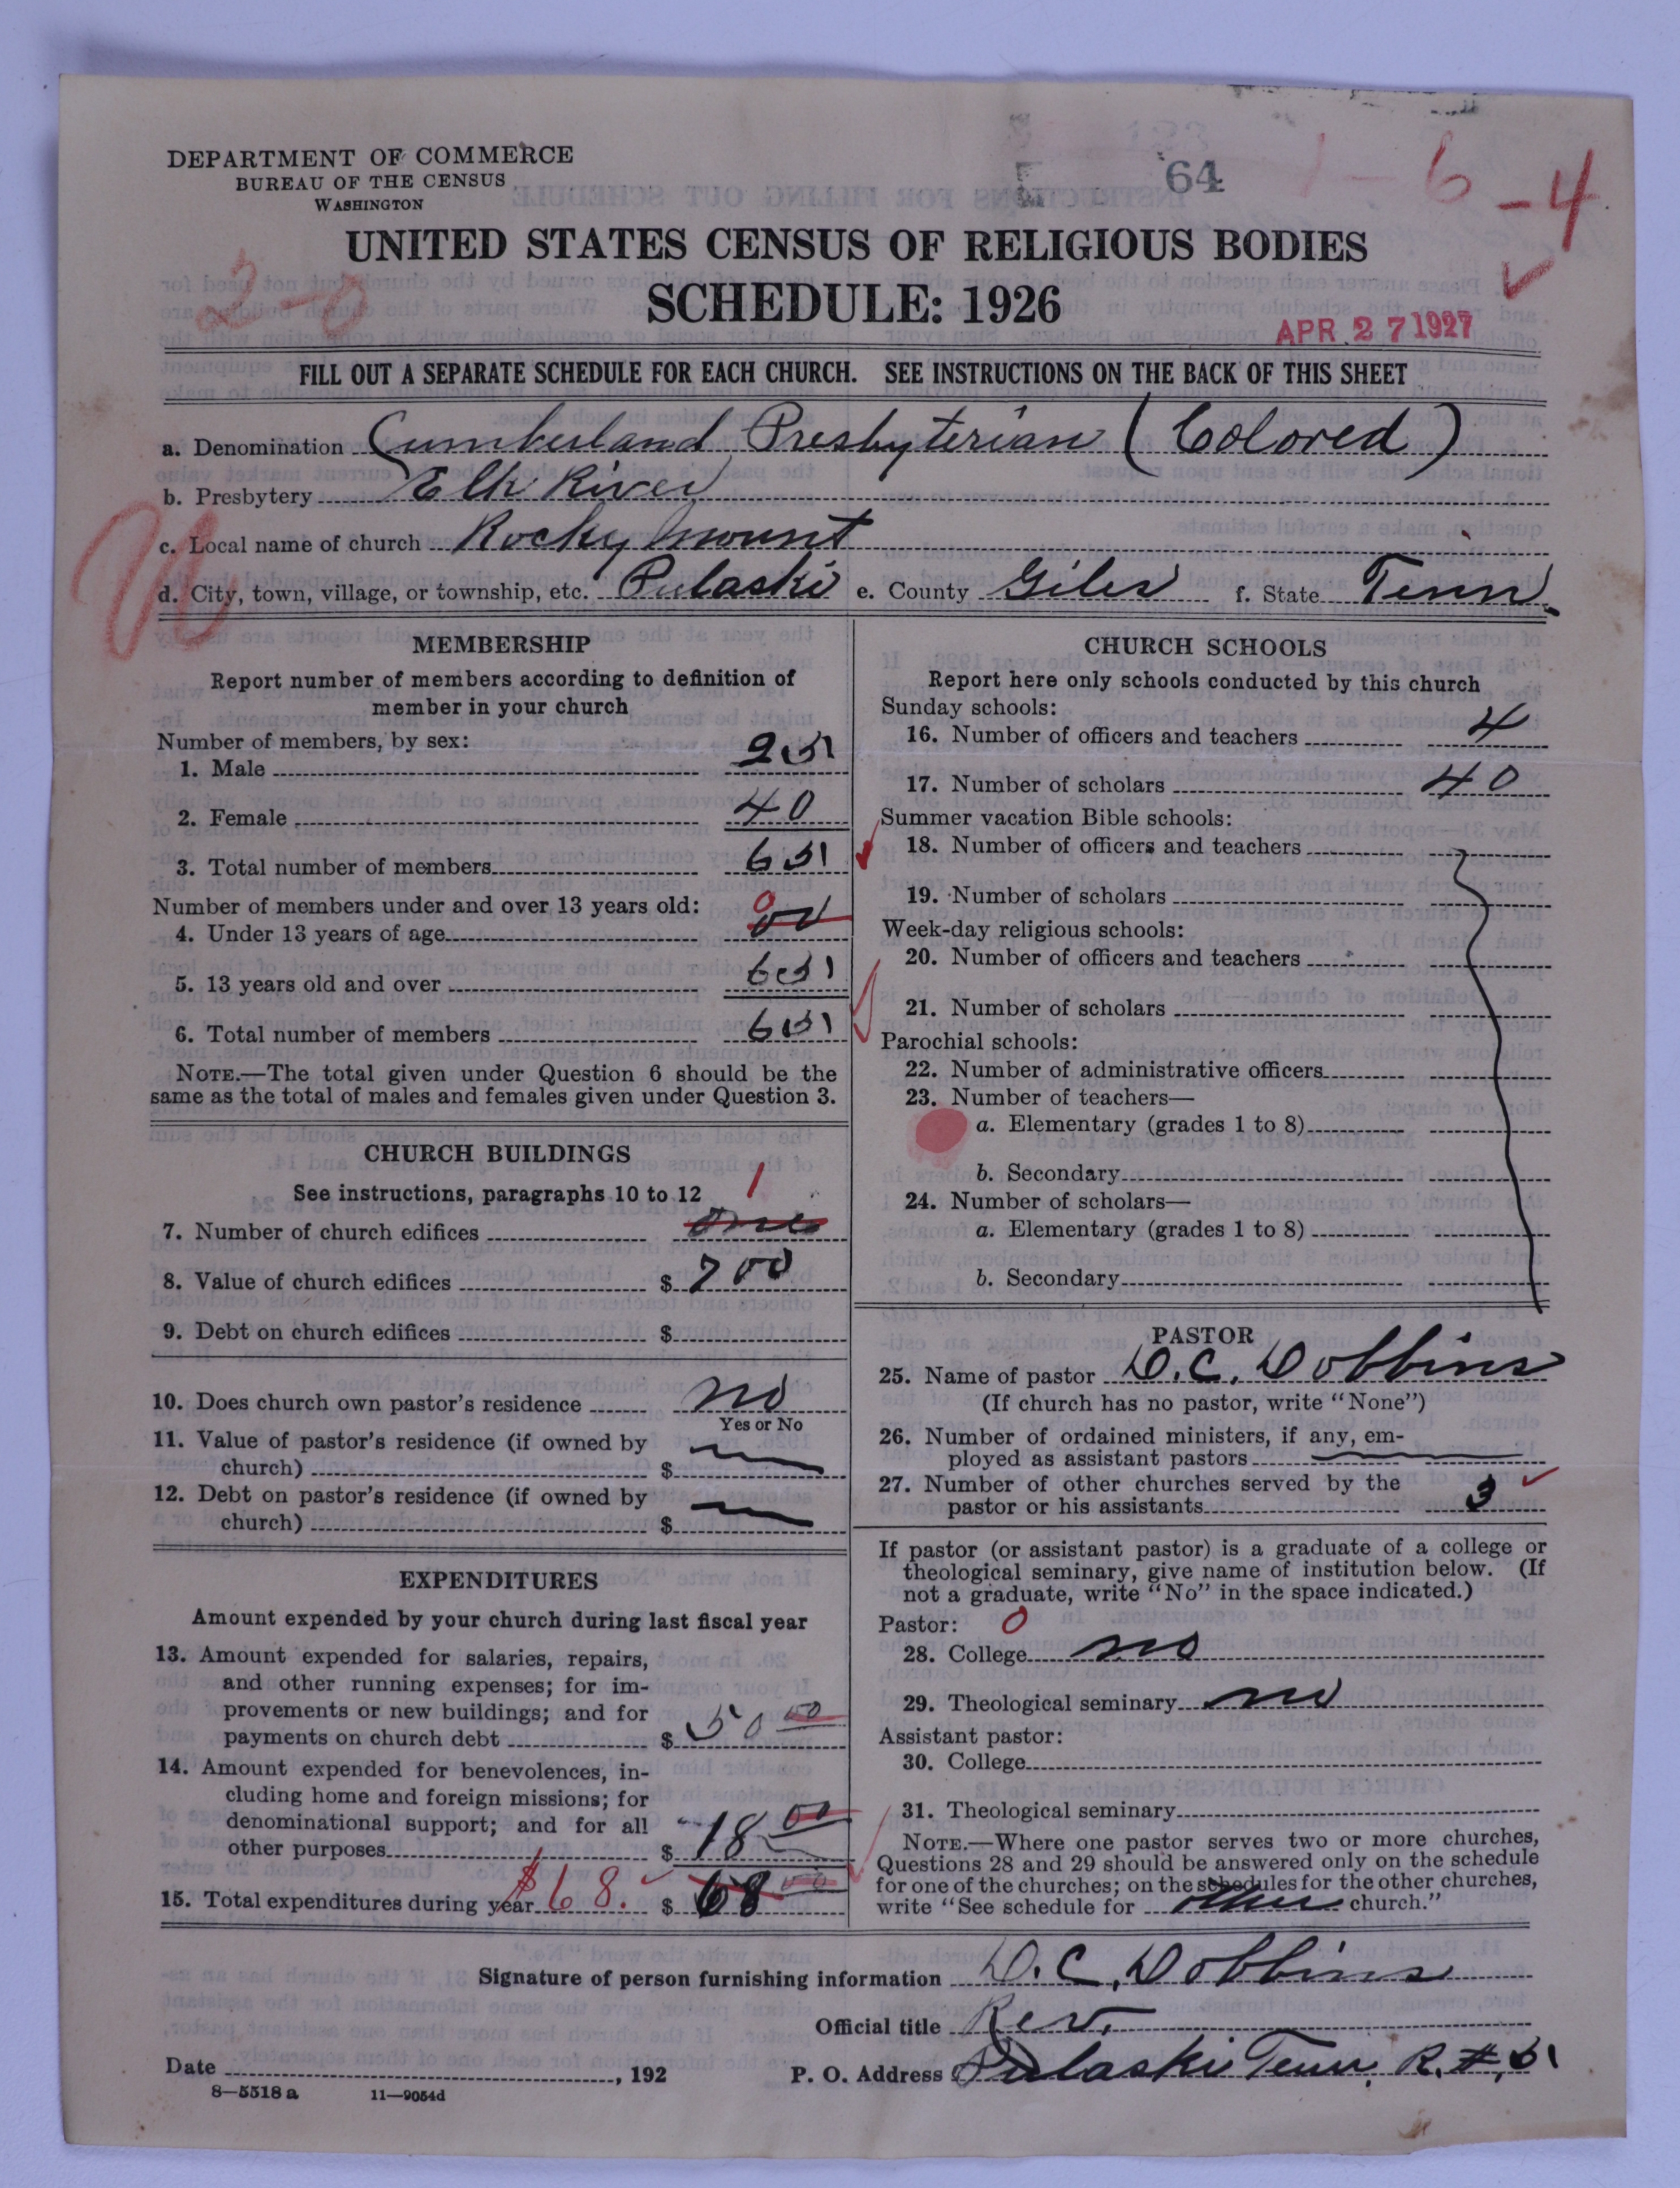 DEPARTMENT OF COMMERCE
BUREAU OF THE CENSUS
WASHINGTON
64
1 - 6 - 4
UNITED STATES CENSUS OF RELIGIOUS BODIES
2-0
SCHEDULE: 1926
APR 27 1927
FILL OUT A SEPARATE SCHEDULE FOR EACH CHURCH. SEE INSTRUCTIONS ON THE BACK OF THIS SHEET
a. Denomination Cumberland Presbyterian (Colored)
b. Presbytery Elk River
c. Local name of church Rocky Mount
d. City, town, village, or township, etc. Pulaski e. County Giles f. State Tenn.
MEMBERSHIP
Report number of members according to definition of
member in your church
Number of members, by sex:
1. Male 25
2. Female 40
3. Total number of members 65
Number of members under and over 13 years old: 0
4. Under 13 years of age 00
5. 13 years old and over 65
6. Total number of members 65
NOTE.—The total given under Question 6 should be the
same as the total of males and females given under Question 3.
CHURCH BUILDINGS
See instructions, paragraphs 10 to 12 1
7. Number of church edifices one
8. Value of church edifices $ 700
9. Debt on church edifices $
10. Does church own pastor's residence no
Yes or No
11. Value of pastor's residence (if owned by
church) $
12. Debt on pastor's residence (if owned by
church) $
EXPENDITURES
Amount expended by your church during last fiscal year
13. Amount expended for salaries, repairs,
and other running expenses; for im-
provements or new buildings; and for
payments on church debt $ 50 00
14. Amount expended for benevolences, in-
cluding home and foreign missions; for
denominational support; and for all
other purposes $ 18 00
15. Total expenditures during year $68. $ 68 00
CHURCH SCHOOLS
Report here only schools conducted by this church
Sunday schools:
16. Number of officers and teachers 4
17. Number of scholars 40
Summer vacation Bible schools:
18. Number of officers and teachers
19. Number of scholars
Week-day religious schools:
20. Number of officers and teachers
21. Number of scholars
Parochial schools:
22. Number of administrative officers
23. Number of teachers—
a. Elementary (grades 1 to 8)
b. Secondary
24. Number of scholars—
a. Elementary (grades 1 to 8)
b. Secondary
PASTOR
25. Name of pastor D.C. Dobbins
(If church has no pastor, write "None")
26. Number of ordained ministers, if any, em-
ployed as assistant pastors
27. Number of other churches served by the
pastor or his assistants 3
If pastor (or assistant pastor) is a graduate of a college or
theological seminary, give name of institution below. (If
not a graduate, write "No" in the space indicated.)
Pastor: 0
28. College no
29. Theological seminary no
Assistant pastor:
30. College
31. Theological seminary
NOTE.—Where one pastor serves two or more churches,
Questions 28 and 29 should be answered only on the schedule
for one of the churches; on the schedules for the other churches,
write "See schedule for other church."
Signature of person furnishing information D.C. Dobbins
Official title Rev.
Date , 192 P. O. Address Pulaski Tenn. R. #5
8—5518 a 11—9054d